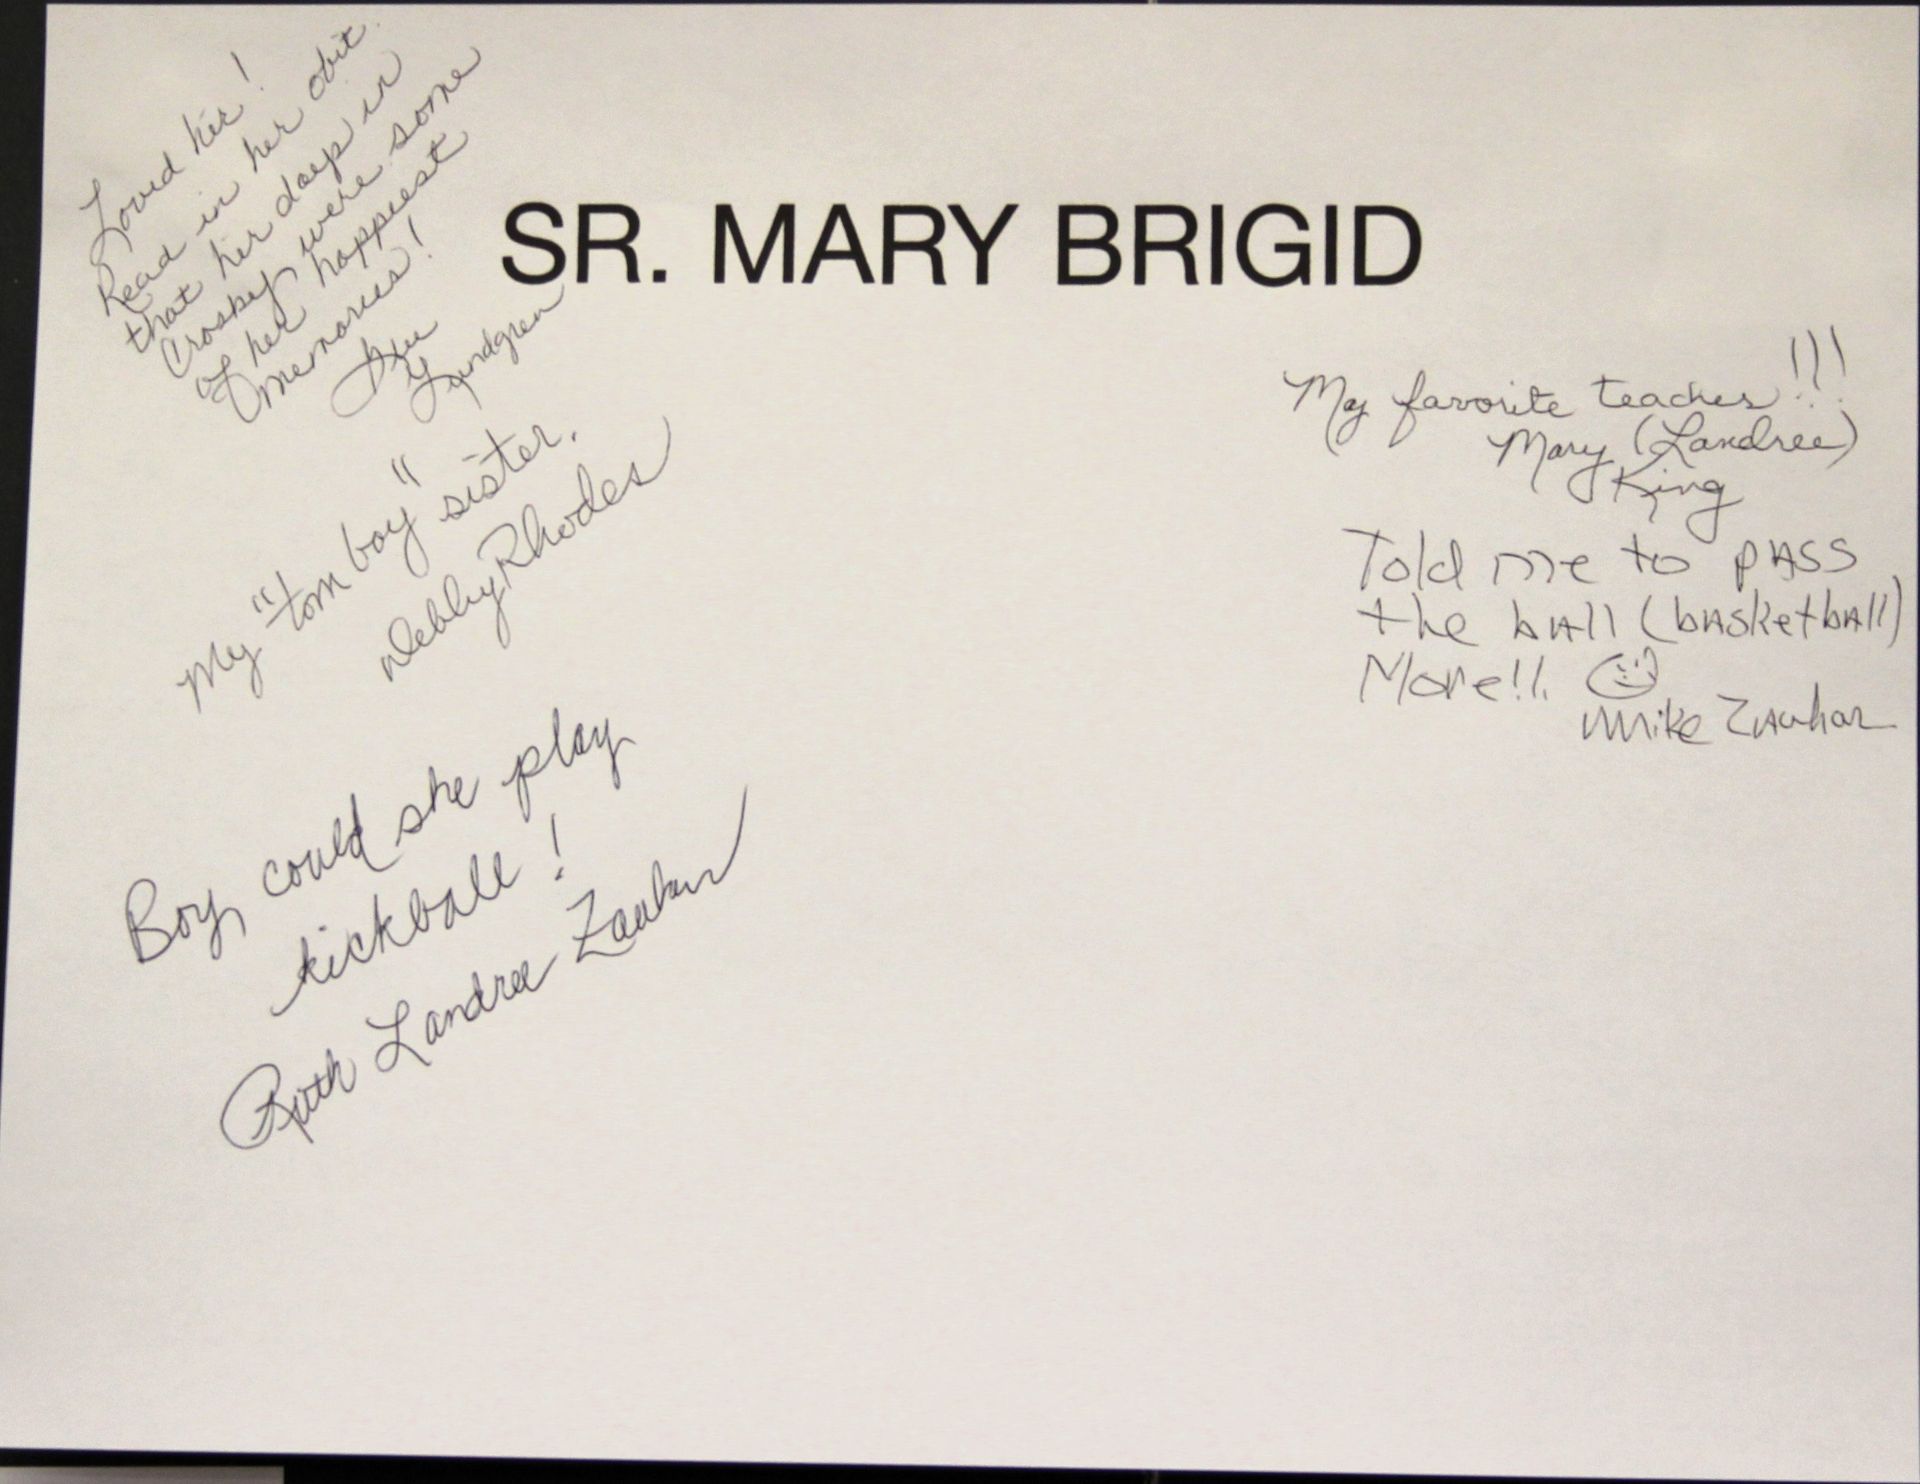 SR. MARY BRIGID
Loved her!
Read in her obit.
that her days in
Crosby were some
of her happiest
memories!
Lundgren
My "tom boy" sister.
Debby Rhodes
Boy, could she play
kickball!
Ruth Landree Zauhar
My favorite teacher!!!
Mary (Landree)
King
Told me to pass
the ball (basketball)
More!!.
Mike Zauhar